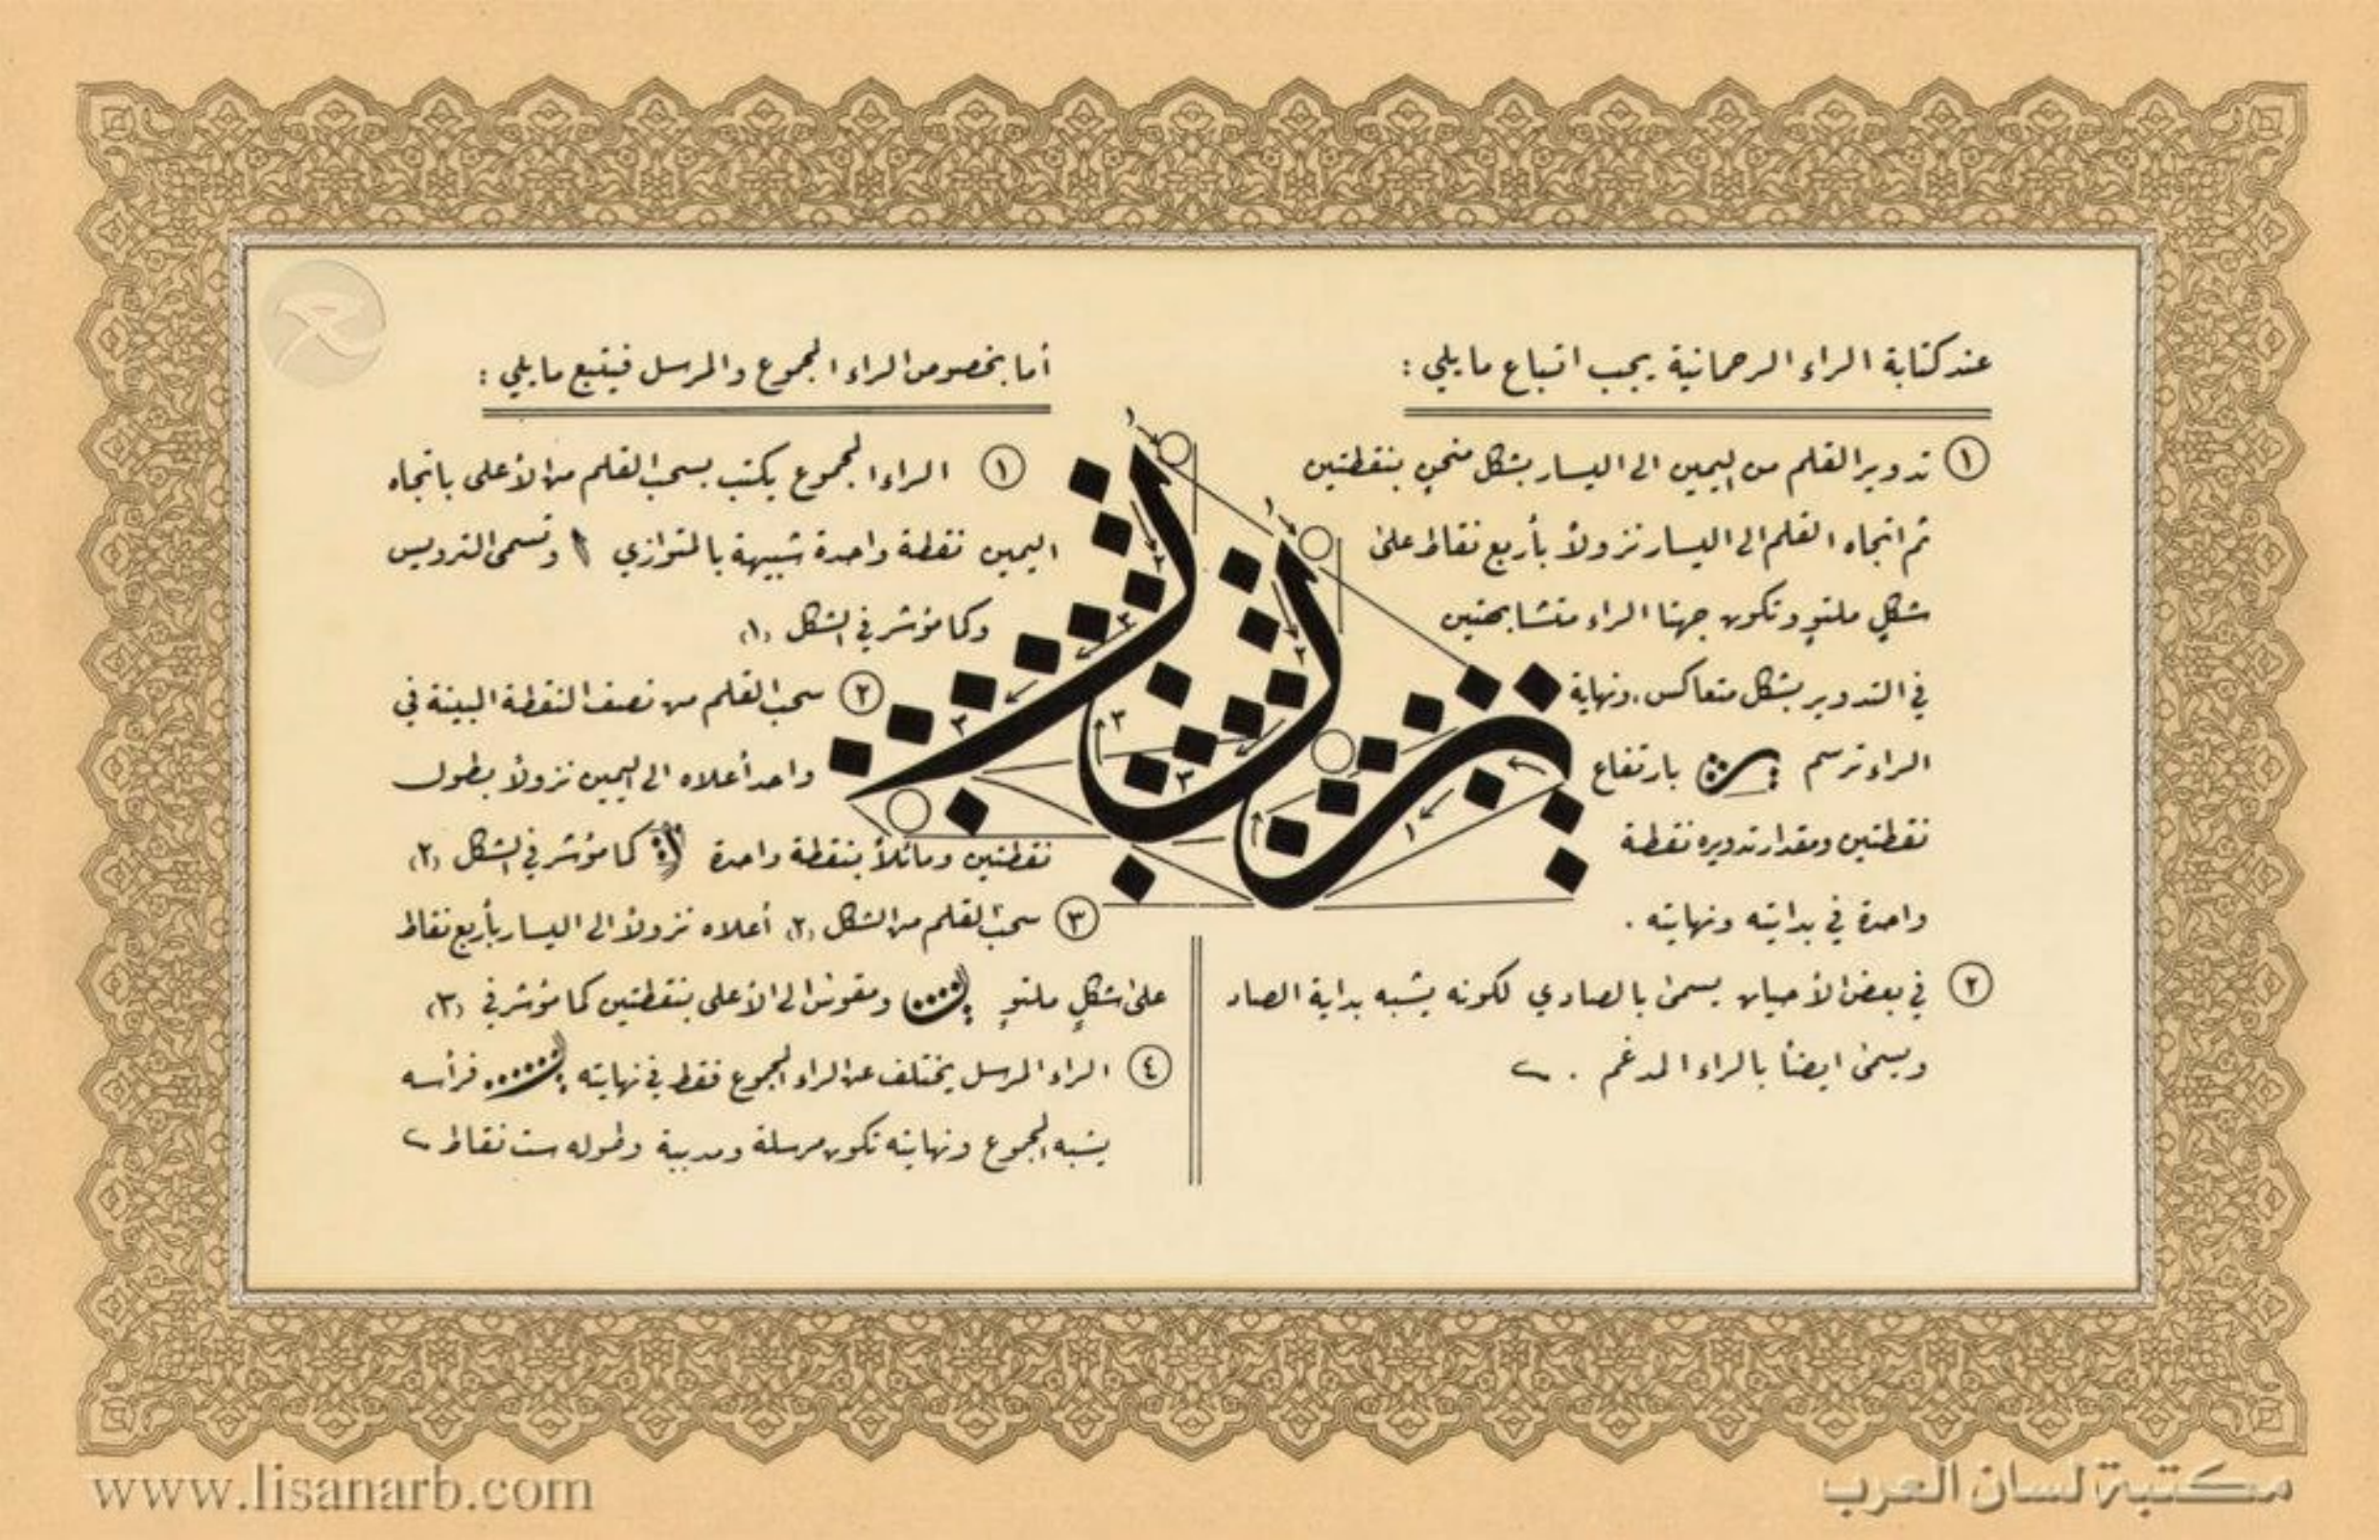 عند كتابة الراء الرحمانية يجب اتباع ما يلي :
١ تدوير القلم من اليمين الى اليسار بشكل منحنٍ بنقطتين
ثم اتجاه القلم الى اليسار نزولاً بأربع نقاط على
شكلٍ ملتوٍ وتكون جهتا الراء متشابهتين
في التدوير بشكل متعاكس، ونهاية
الراء ترسم بارتفاع
نقطتين ومقدار تدويره نقطة
واحدة في بدايته ونهايته .
٢ في بعض الأحيان يسمى بالصادي لكونه يشبه بداية الصاد
ويسمى ايضاً بالراء المدغم .
أما بخصوص الراء المجموع والمرسل فيتبع ما يلي :
١ الراء المجموع يكتب بسحب القلم من الأعلى باتجاه
اليمين نقطة واحدة شبيهة بالمتوازي وتسمى الترويس
وكما مؤشر في الشكل (١)
٢ سحب القلم من نصف النقطة المبينة في
واحد أعلاه الى اليمين نزولاً بطول
نقطتين ومائلاً بنقطة واحدة كما مؤشر في الشكل (٢)
٣ سحب القلم من الشكل (٢) أعلاه نزولاً الى اليسار بأربع نقاط
على شكلٍ ملتوٍ ومقوس الى الأعلى بنقطتين كما مؤشر في (٣)
٤ الراء المرسل يختلف عن الراء المجموع فقط في نهايته فرأسه
يشبه المجموع ونهايته تكون مرسلة ومدببة وطوله ست نقاط
١
٢
٣
٣
١
٢
٣
٣
١
www.lisanarb.com
مكتبة لسان العرب